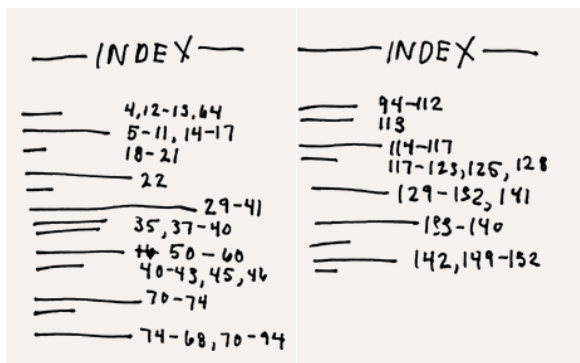 INDEX
4,12-13,64
5-11, 14-17
18-21
22
29-41
35, 37-40
50-60
40-43, 45, 46
70-74
74-68, 70-94
INDEX
94-112
113
114-117
117-123, 125, 128
129-132, 141
133-140
142, 149-152